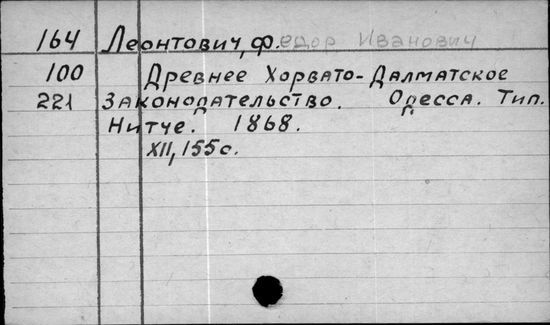 164 Леонтович, Федор Иванович
100 Древнее Хорвато-Далматское
221 Законодательство. Одесса. Тип.
Нитче. 1868.
XII, 155 с.